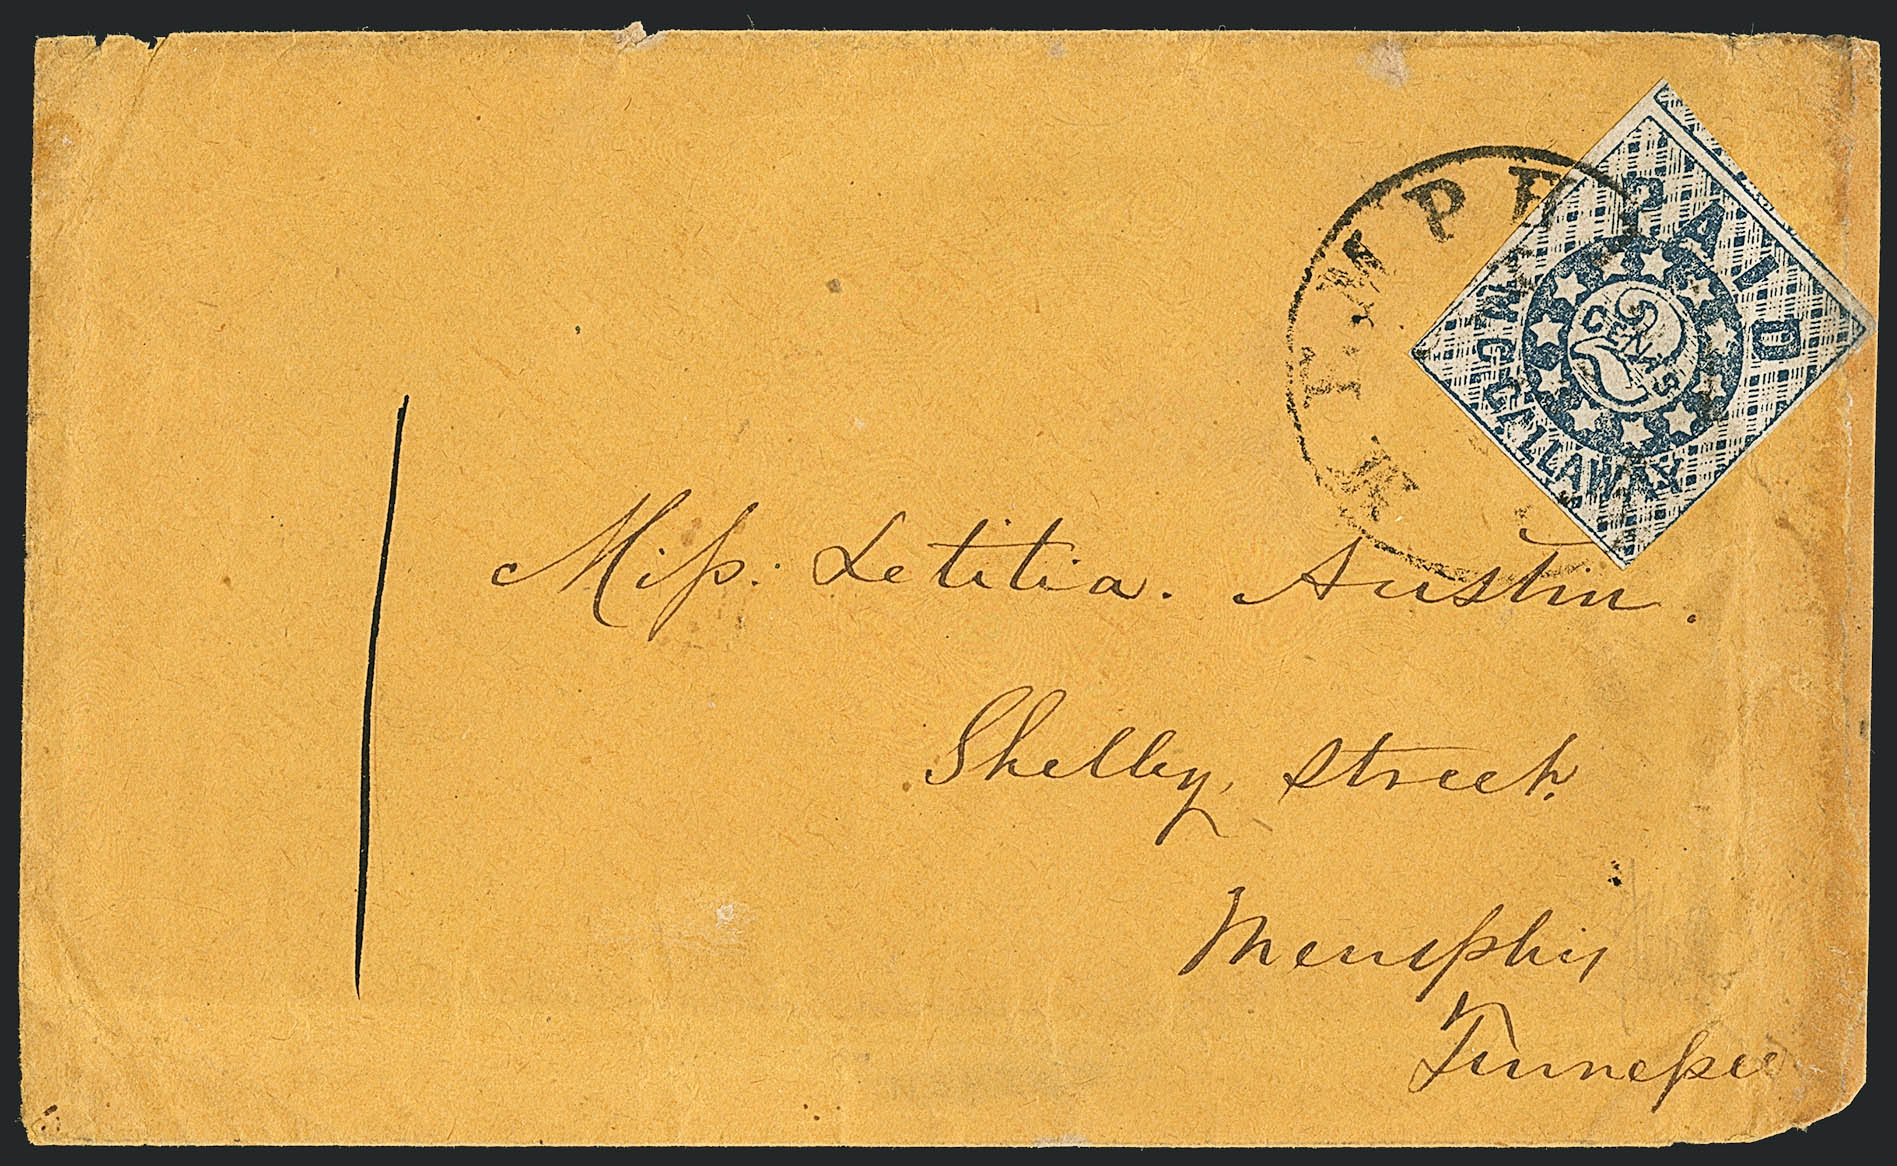 PAID
2
CENTS
M.C. CALLAWAY
MEMPHI
Miss. Letitia. Austin.
Shelby, Street.
Memphis
Tennessee